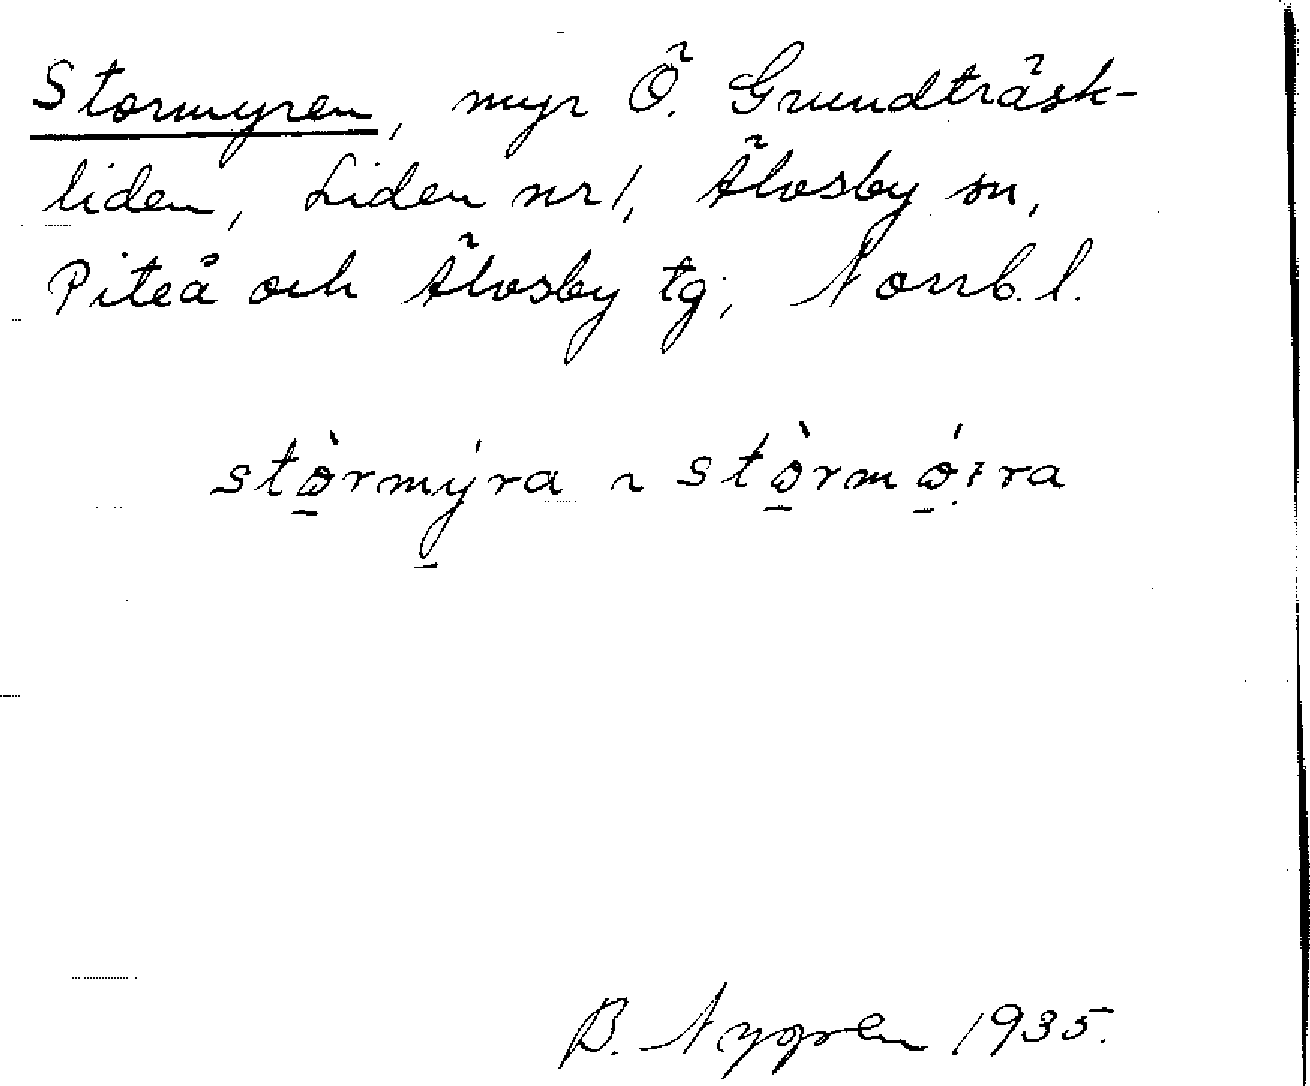 Stormyren, myr Ö. Grundträsk-
liden, Liden nr 1, Älvsby sn,
Piteå och Älvsby tg, Norrb. l.
stò̱rmý̱ra ~ stò̱rmó̱:ra
B. Nygren 1935.